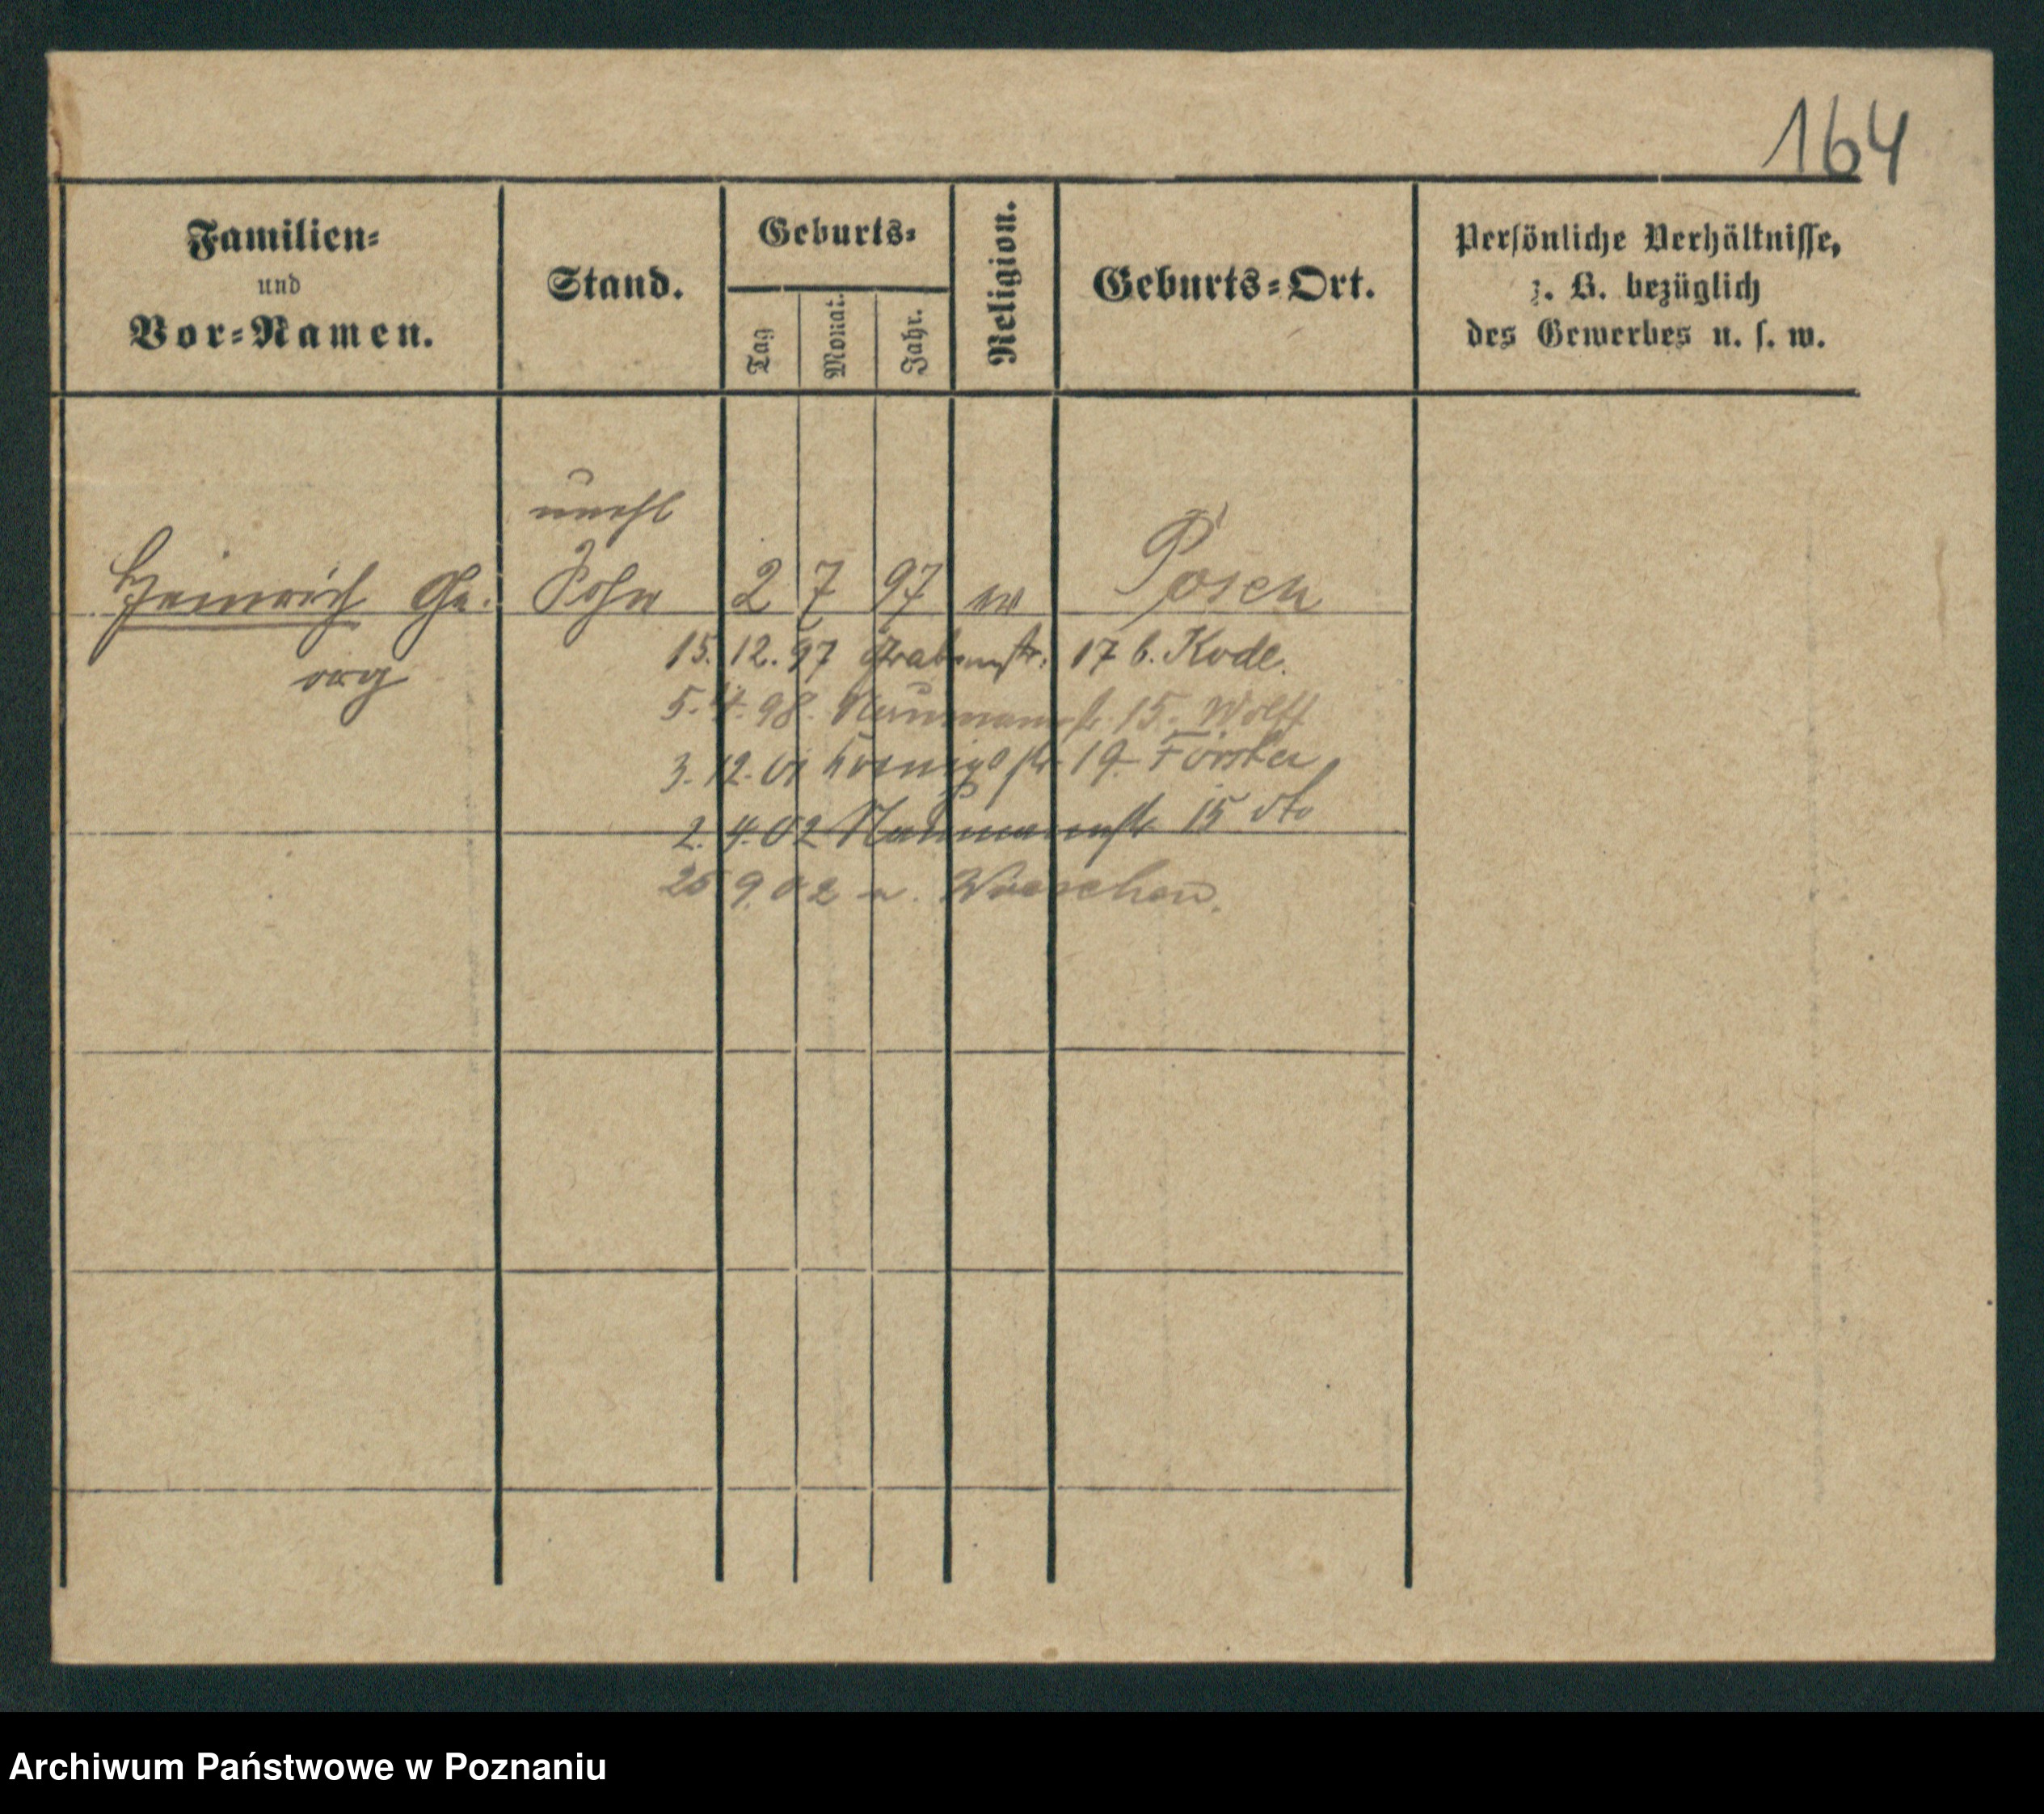 164
Familien=
und
Vor=Namen.
Stand.
Geburts=
Tag
Monat.
Jahr.
Religion.
Geburts=Ort.
Persönliche Verhältnisse,
z. B. bezüglich
des Gewerbes u. s. w.
unehl
Heinrich Ge. Sohn 2 7 97 ev Posen
org
15. 12. 97 Grabenstr. 17 b. Kode.
5. 4. 98. Naumannstr. 15. Wolff
3. 12. 01 Königsstr 19. Förster
2. 4. 02 Naumannstr 15 dto
25 9. 02 n. Wreschen.
Archiwum Państwowe w Poznaniu